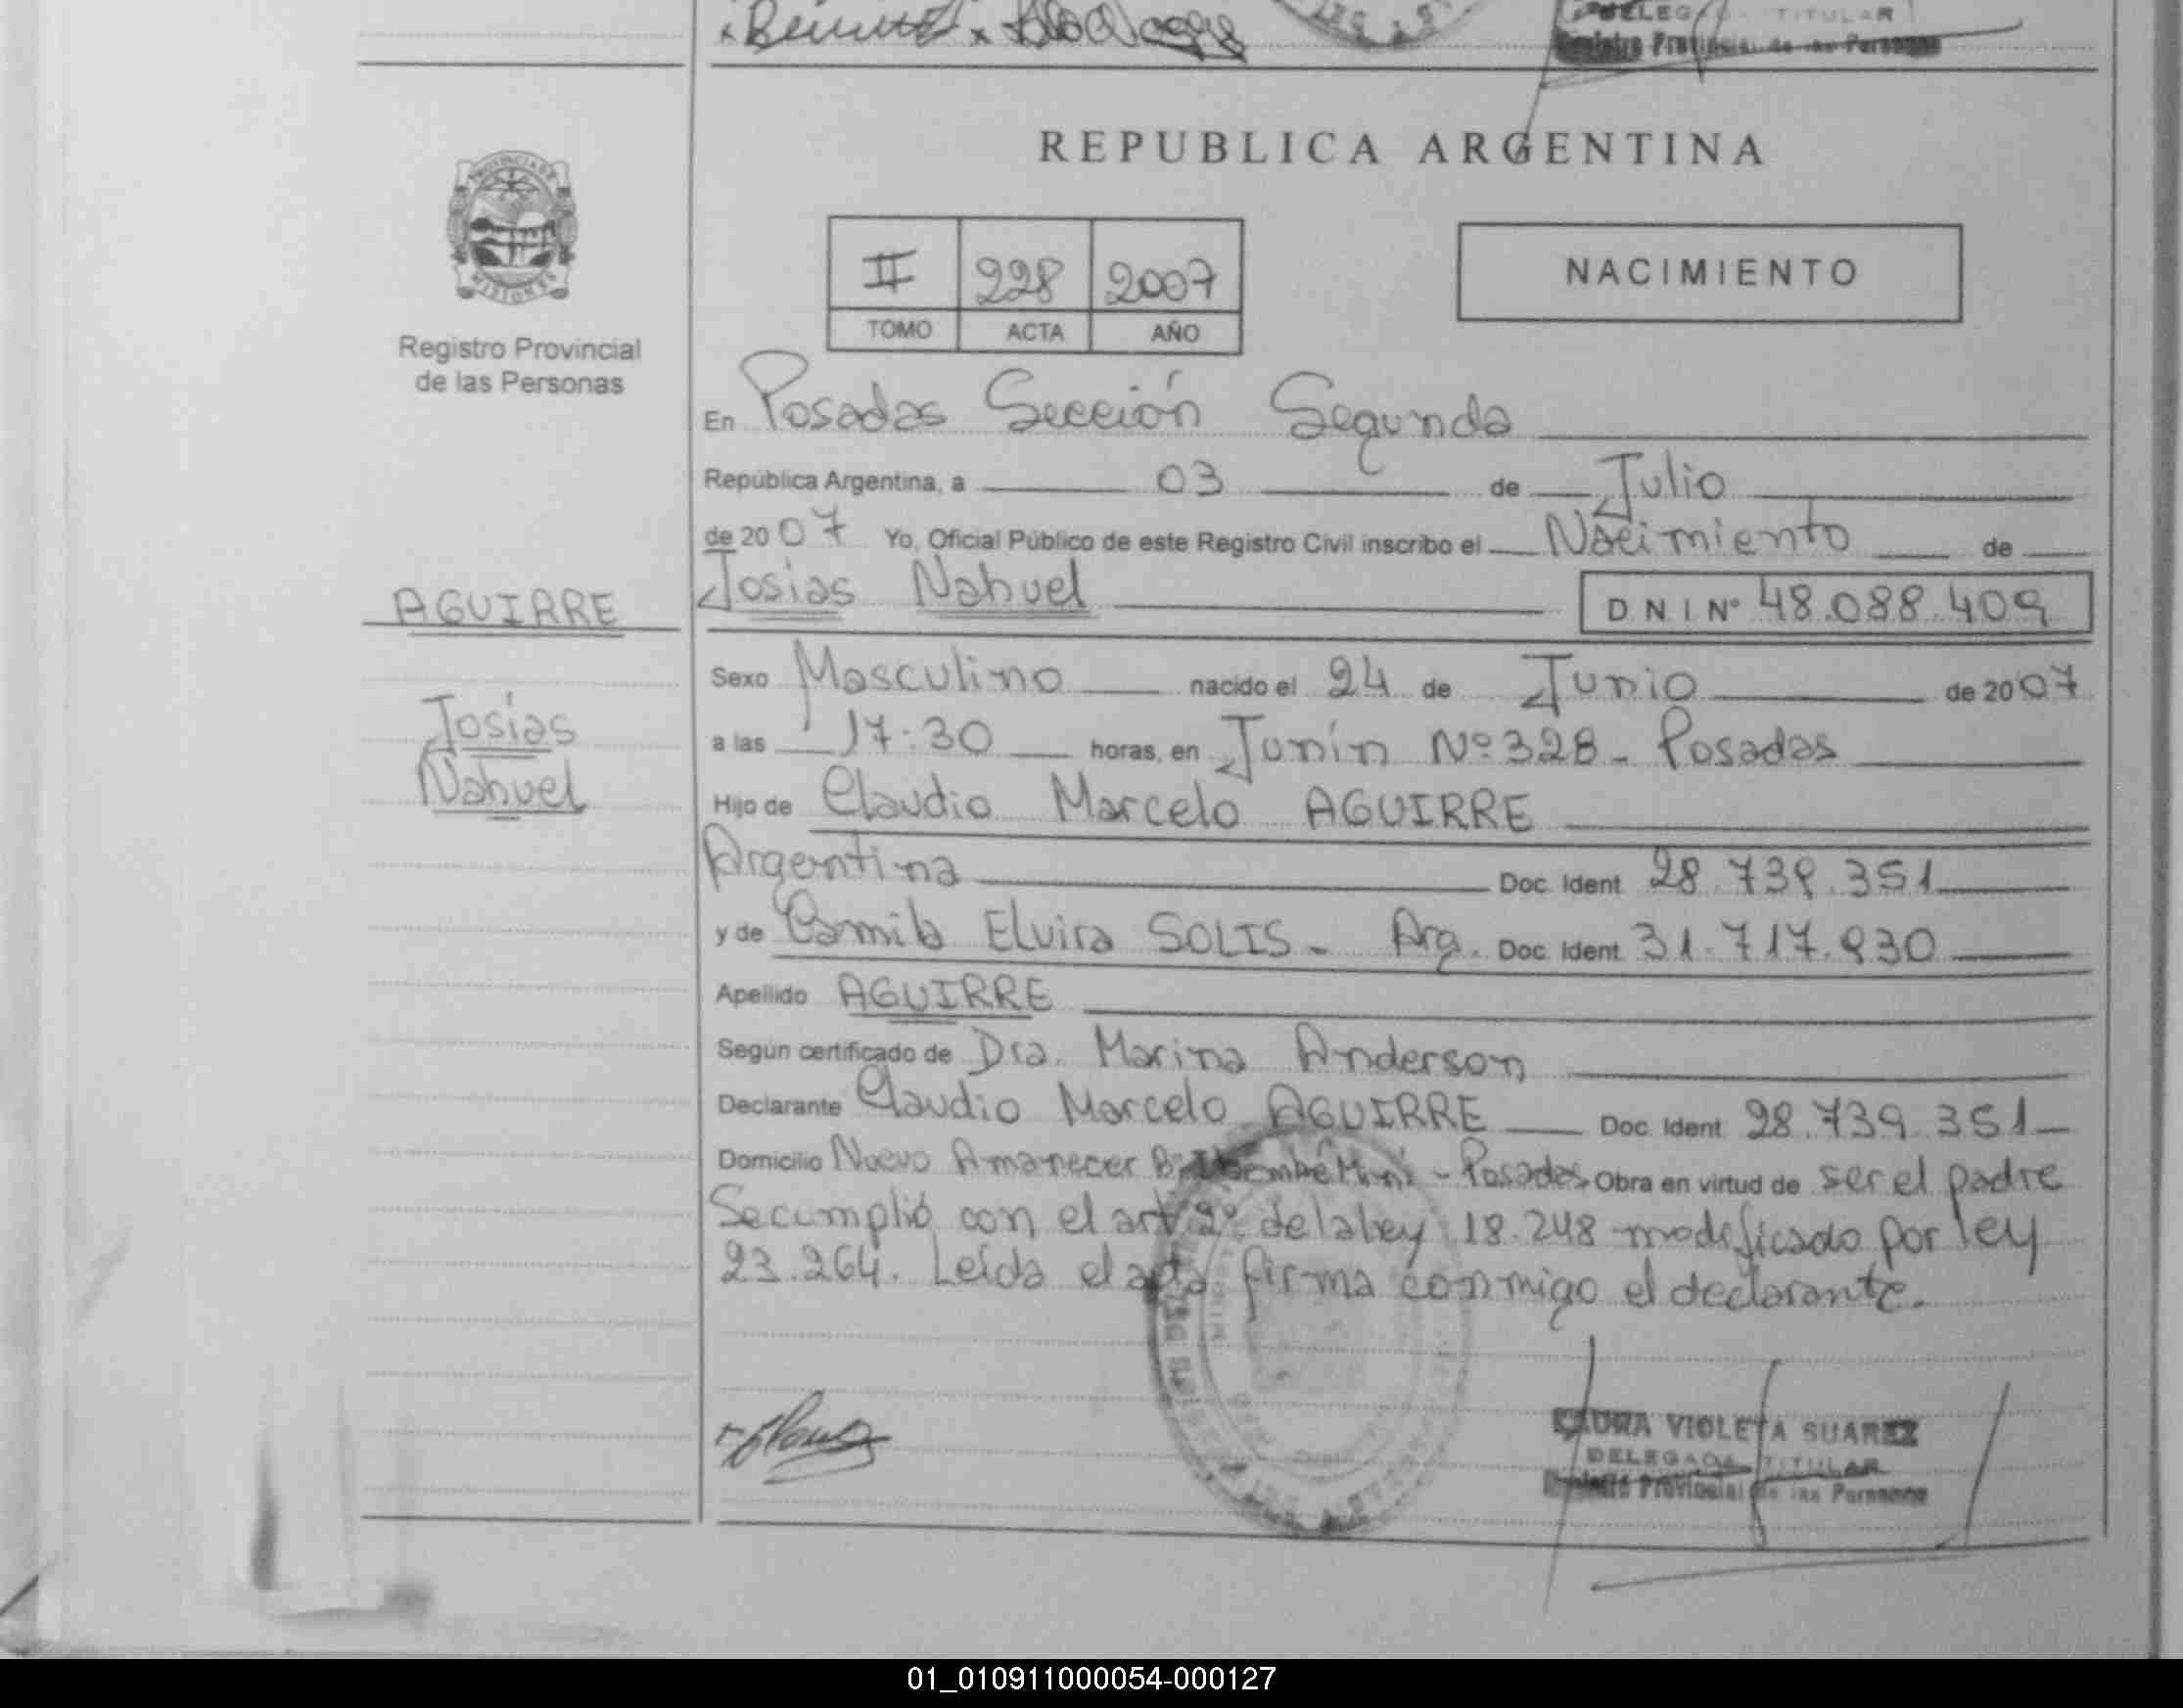 DELEGADA TITULAR
Registro Provincial de las Personas
REPUBLICA ARGENTINA
PROVINCIA DE
MISIONES
Registro Provincial
de las Personas
II 228 2007
TOMO ACTA AÑO
NACIMIENTO
En Posadas Sección Segunda
República Argentina, a 03 de Julio
de 2007 Yo, Oficial Público de este Registro Civil inscribo el Nacimiento de
AGUIRRE
Josías Nahuel
D N I Nº 48.088.409
Josías
Nahuel
Sexo Masculino nacido el 24 de Junio de 2007
a las 17:30 horas, en Junín Nº 328 - Posadas
Hijo de Claudio Marcelo AGUIRRE
Argentina Doc. Ident. 28.739.351
y de Camila Elvira SOLIS - Arg. Doc. Ident. 31.717.930
Apellido AGUIRRE
Según certificado de Dra. Marina Anderson
Declarante Claudio Marcelo AGUIRRE Doc. Ident. 28.739.351
Domicilio Nuevo Amanecer - Posadas Obra en virtud de ser el padre
Se cumplió con el art. 2º de la ley 18.248 modificado por ley
23.264. Leída el acta firma conmigo el declarante.
LAURA VIOLETA SUAREZ
DELEGADA TITULAR
Registro Provincial de las Personas
01_010911000054-000127